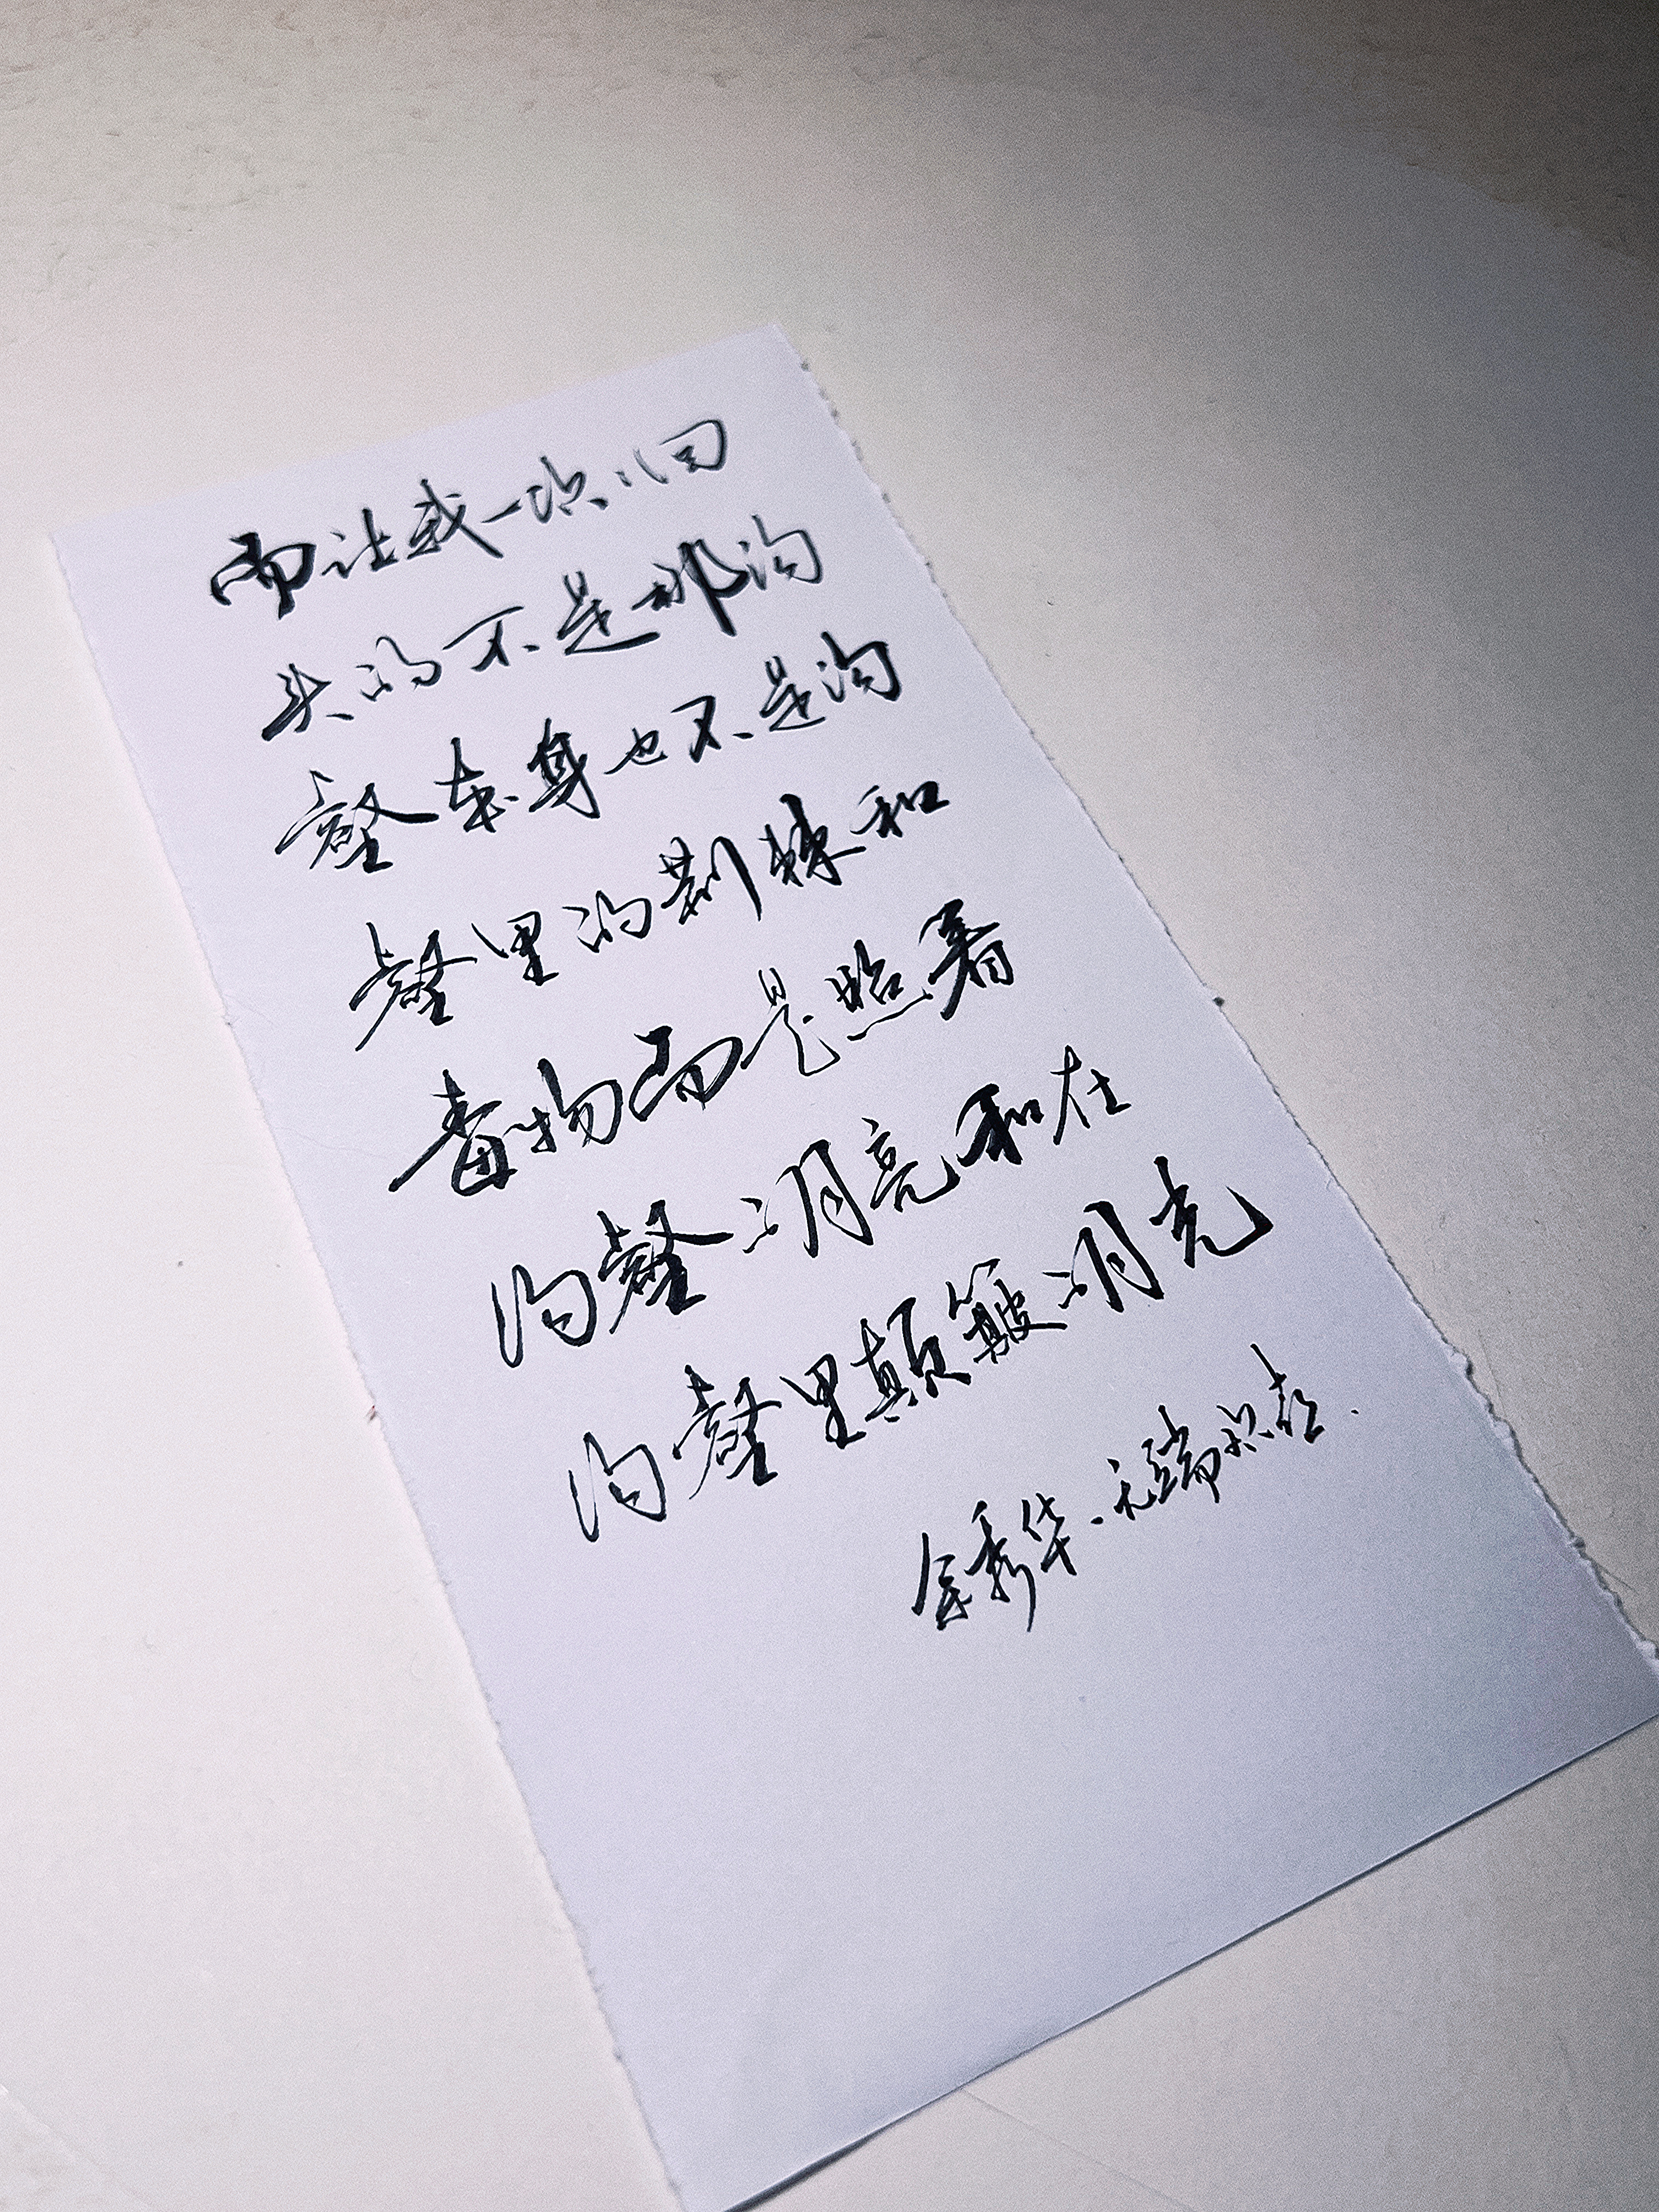 而让我一次次回
头的不是那沟
壑本身也不是沟
壑里的荆棘和
毒物而是照着
沟壑的月亮和在
沟壑里颠簸的月光
余秀华·无端欢喜.